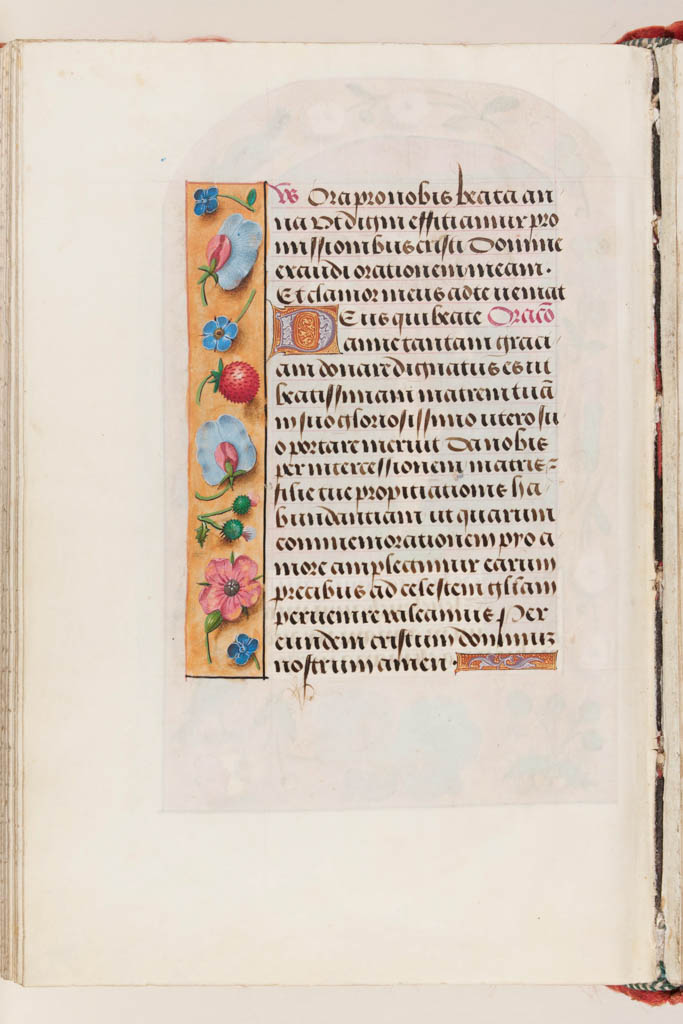 Vs Ora pro nobis beata an
na Vt digni effitiamur pro
missionibus cristi Domine
exaudi orationem meam.
Et clamor meus ad te ueniat
Deus qui beate Oracō
anne tantam graci
am donare dignatus es ut
beatissimam matrem tuā
in suo gloriosissimo utero su
o portare meruit Da nobis
per intercessionem matris
filie tue propitiationis ha
bundantiam ut quarum
commemorationem pro a
more amplectimur earum
precibus ad celestem glīam
peruenire ualeamus Per
eundem cristum dominuz
nostrum amen.